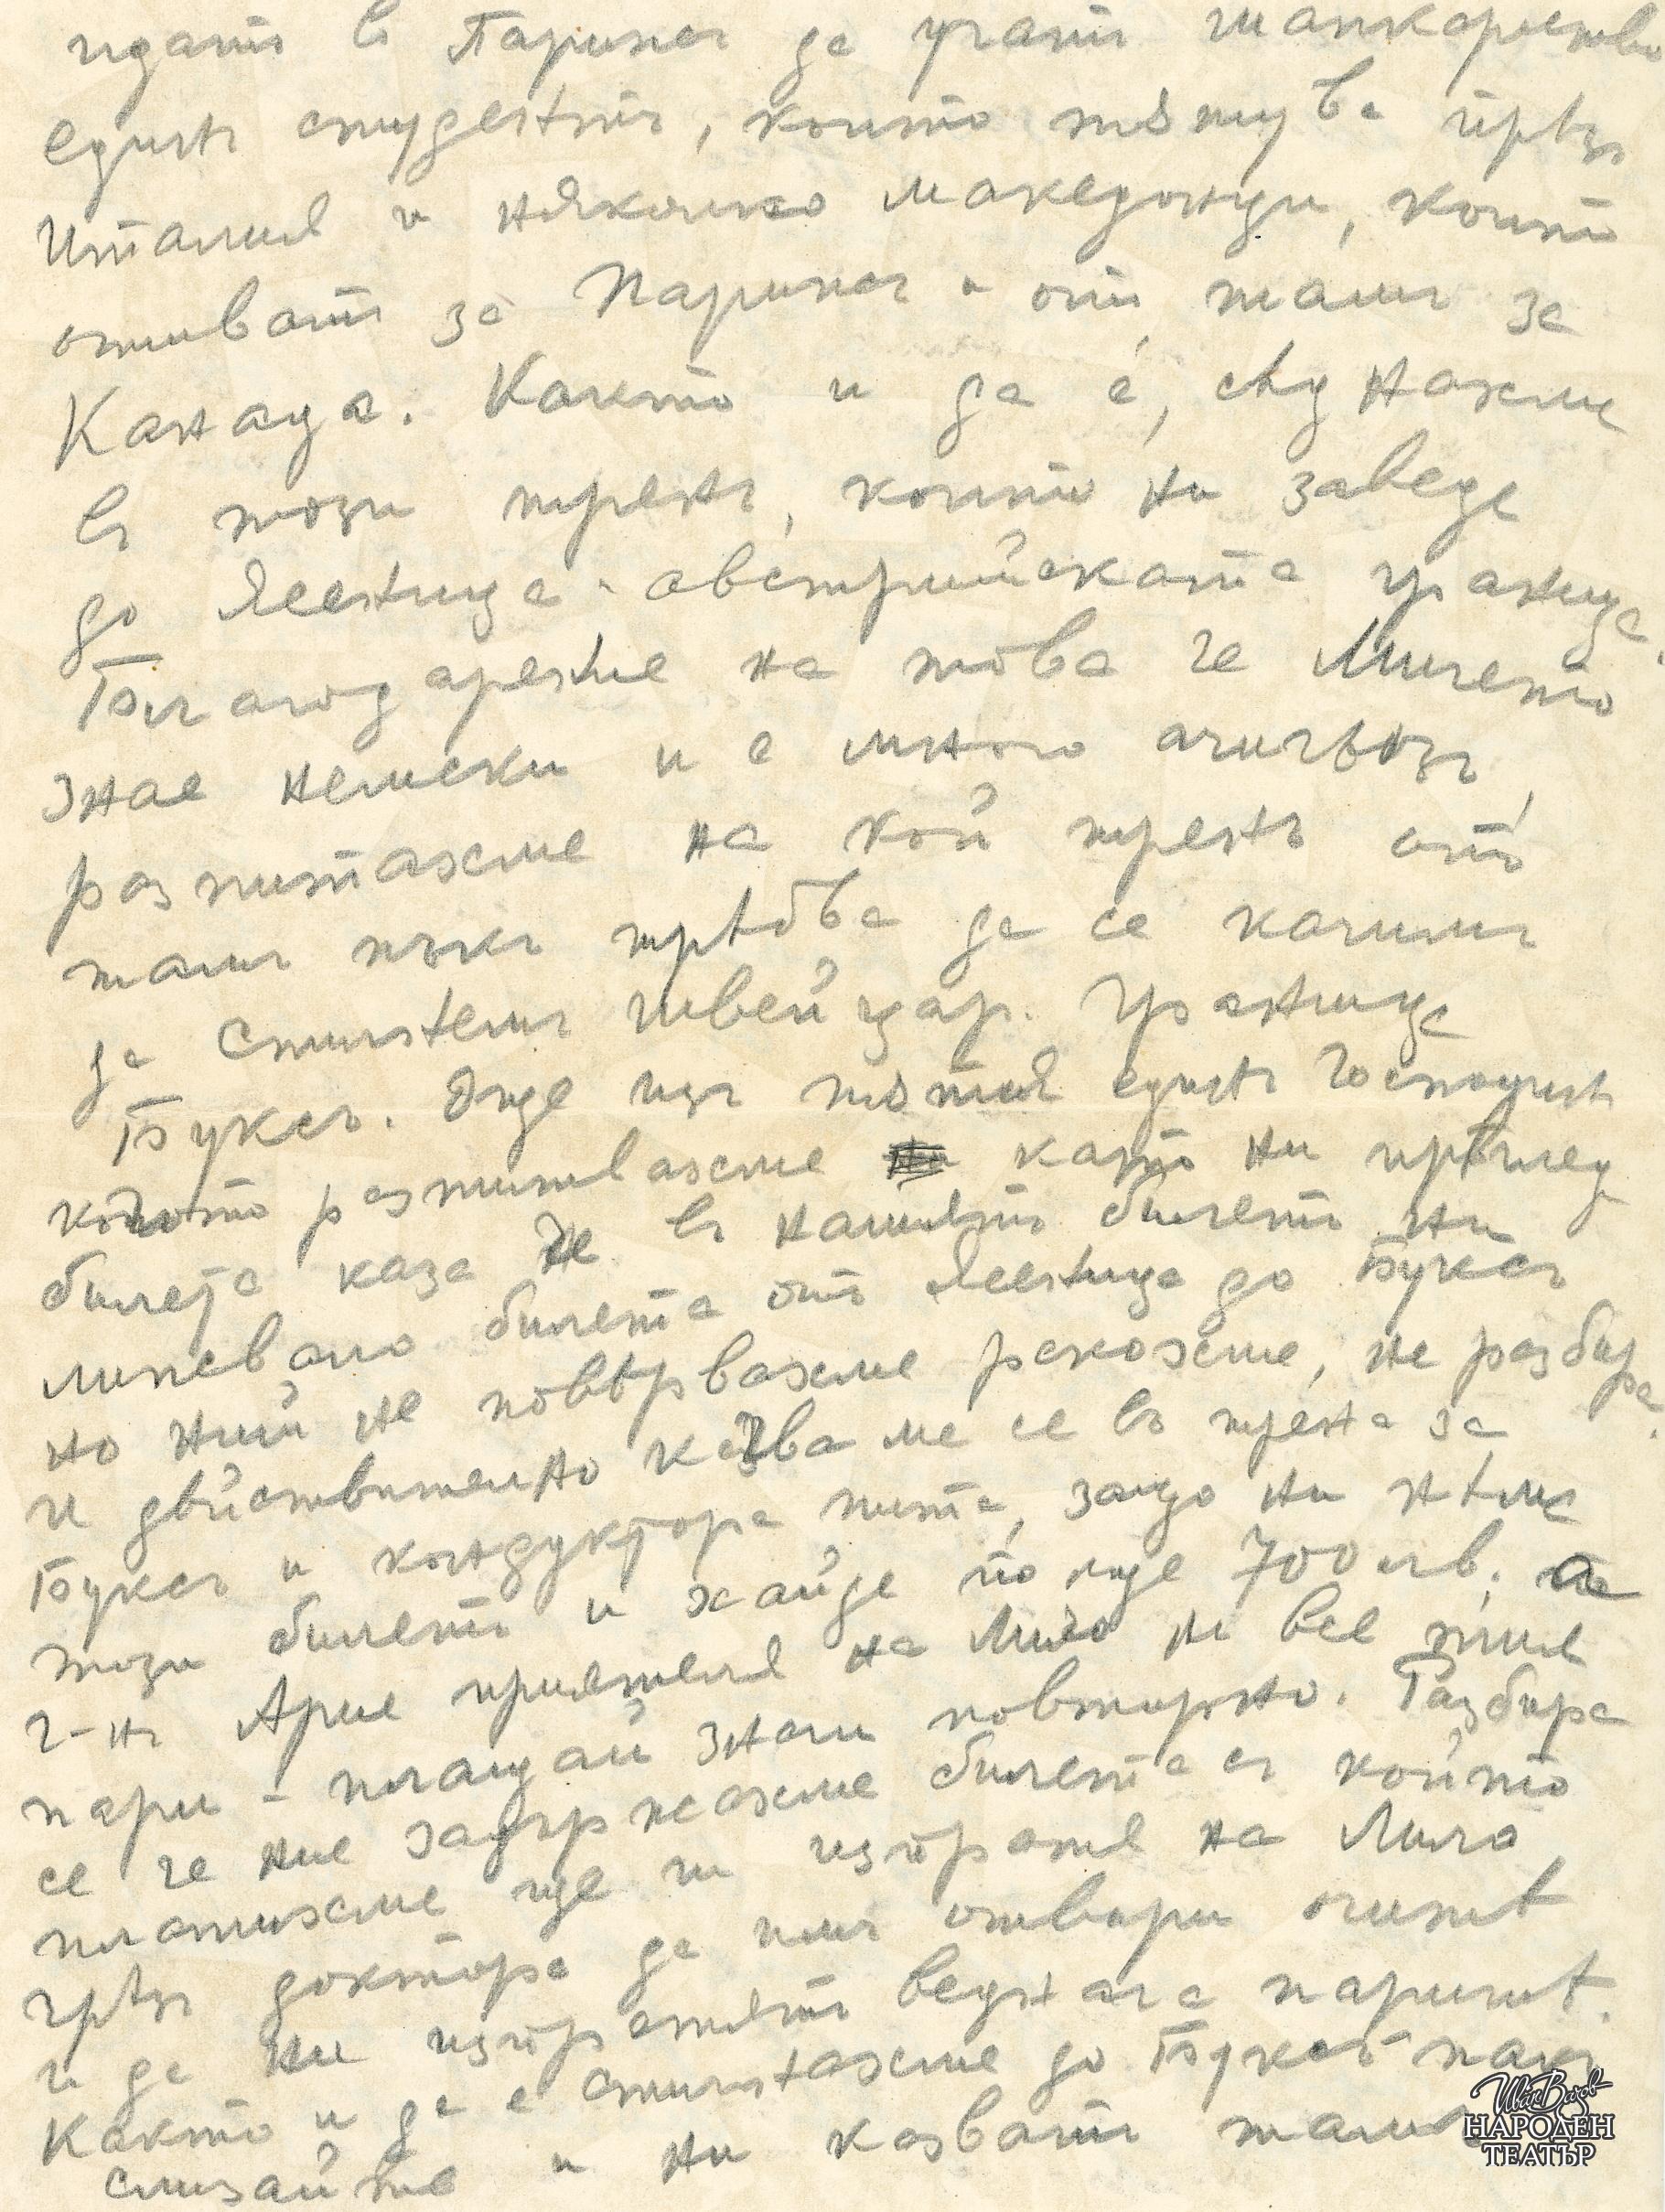 идатъ въ Парижъ да учатъ шапкарство
единъ студентъ, който пѫтува прѣзъ
Италия и няколко македонци, които
отиватъ за Парижъ и отъ тамъ за
Канада. Както и да е, сѣднахме
въ този тренъ, който ни заведе
до Йесеница - австрийската граница.
Благодарение на това че Личето
знае немски и е много
разпитахме на кой тренъ отъ
тамъ пъкъ трѣбва да се качимъ
да стигнемъ швейцар. граница
Буксъ. Още изъ пѫтя единъ господинъ
когото разпитвахме като ни прѣглед
билета каза че въ нашиятъ билетъ ни
липсвало билета отъ Йесеница до Буксъ
но ний не повѣрвахме рекохме, не разбира.
и дѣйствително качваме се въ трена за
Буксъ и кондуктора пита, защо ни нѣма
този билетъ и хайде по още 700 лв. а
г-нъ Арие приятеля на Лило не взе
пари - плащай значи повторно. Разбира
се че ние задържахме билета съ който
платихме ще ги изпратя на Лило
чрѣзъ доктора да имъ отвори очитѣ
и да ни изпратятъ веднага паритѣ.
Както и да е стигнахме до Буксъ пакъ
слизайте и ни казватъ тамъ
Иван Вазов
НАРОДЕН
ТЕАТЪР